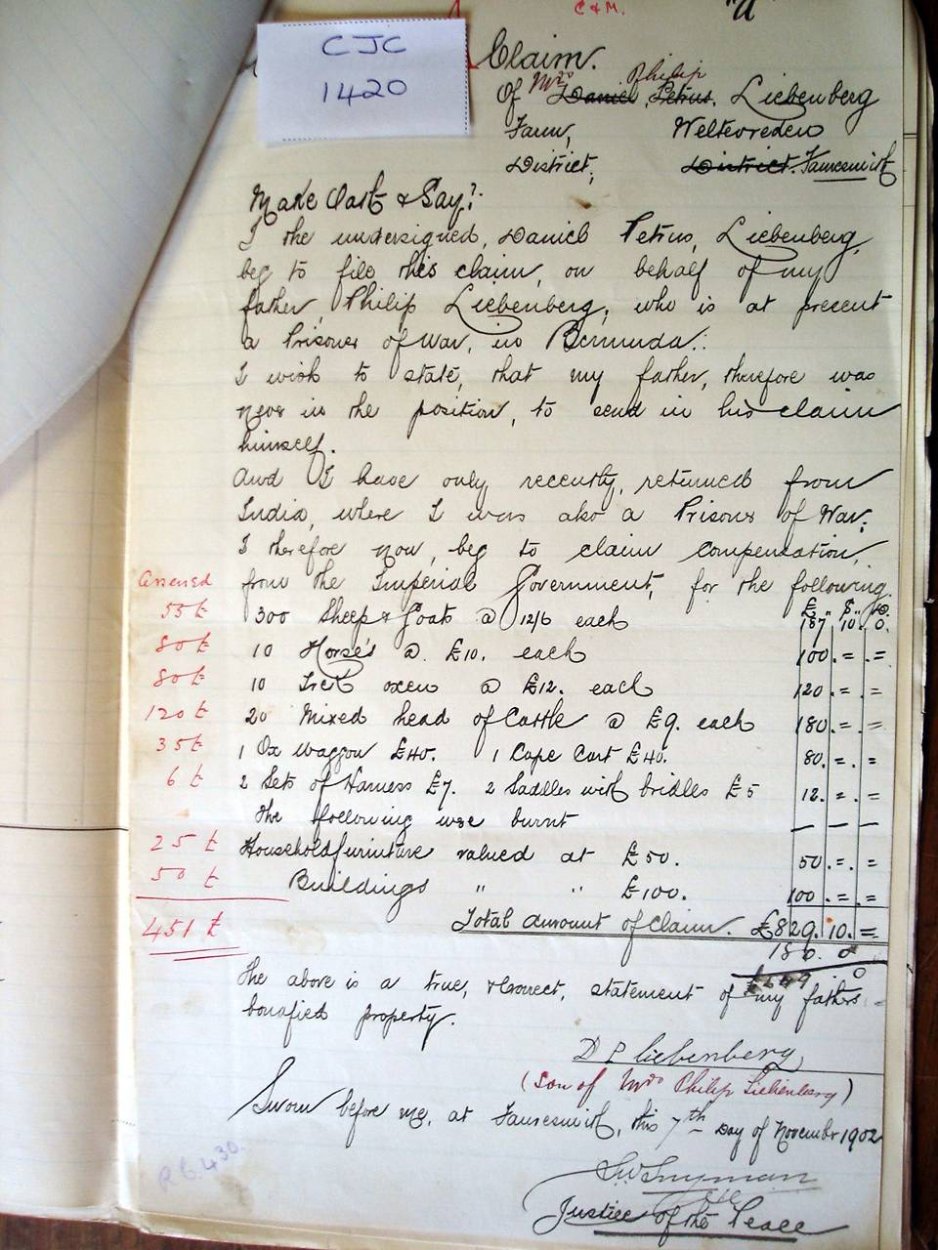 C & M.
CJC
1420
Claim.
Of Mrs Daniel Petrus Philip Liebenberg
Farm, Weltevreden
District, District. Fauresmith
Make Oath & Say:
I the undersigned, Daniel Petrus, Liebenberg,
beg to file this claim, on behalf of my
father, Philip Liebenberg, who is at present
a Prisoner of War, in Bermuda:
I wish to state, that my father, therefore was
never in the position, to send in his claim
himself.
And I have only recently, returned from
India, where I was also a Prisoner of War;
I therefore now, beg to claim compensation,
Assessed from the Imperial Government, for the following.
£ . S . D.
55 £ 300 Sheep & Goats @ 12/6 each 187 10. 0.
80 £ 10 Horse's @. £10. each 100. = . =
80 £ 10 Trek oxen @ £12. each 120. = . =
120 £ 20 Mixed head of Cattle @ £9. each 180. = . =
35 £ 1 Ox waggon £40. 1 Cape Cart £40. 80. = . =
6 £ 2 Sets of Harness £7. 2 Saddles with bridles £5 12. = . =
The following was burnt — — —
25 £ Household furniture valued at £50. 50. = . =
50 £ Buildings " " £100. 100 = . =
451 £ Total amount of Claim. £829. 10. =
180. 0
£649 0
The above is a true, & correct, statement of my fathers
bonafied property.
D P Liebenberg
(Son of Mrs Philip Liebenberg)
Sworn before me, at Fauresmith, this 7th Day of November 1902
Justice of the Peace